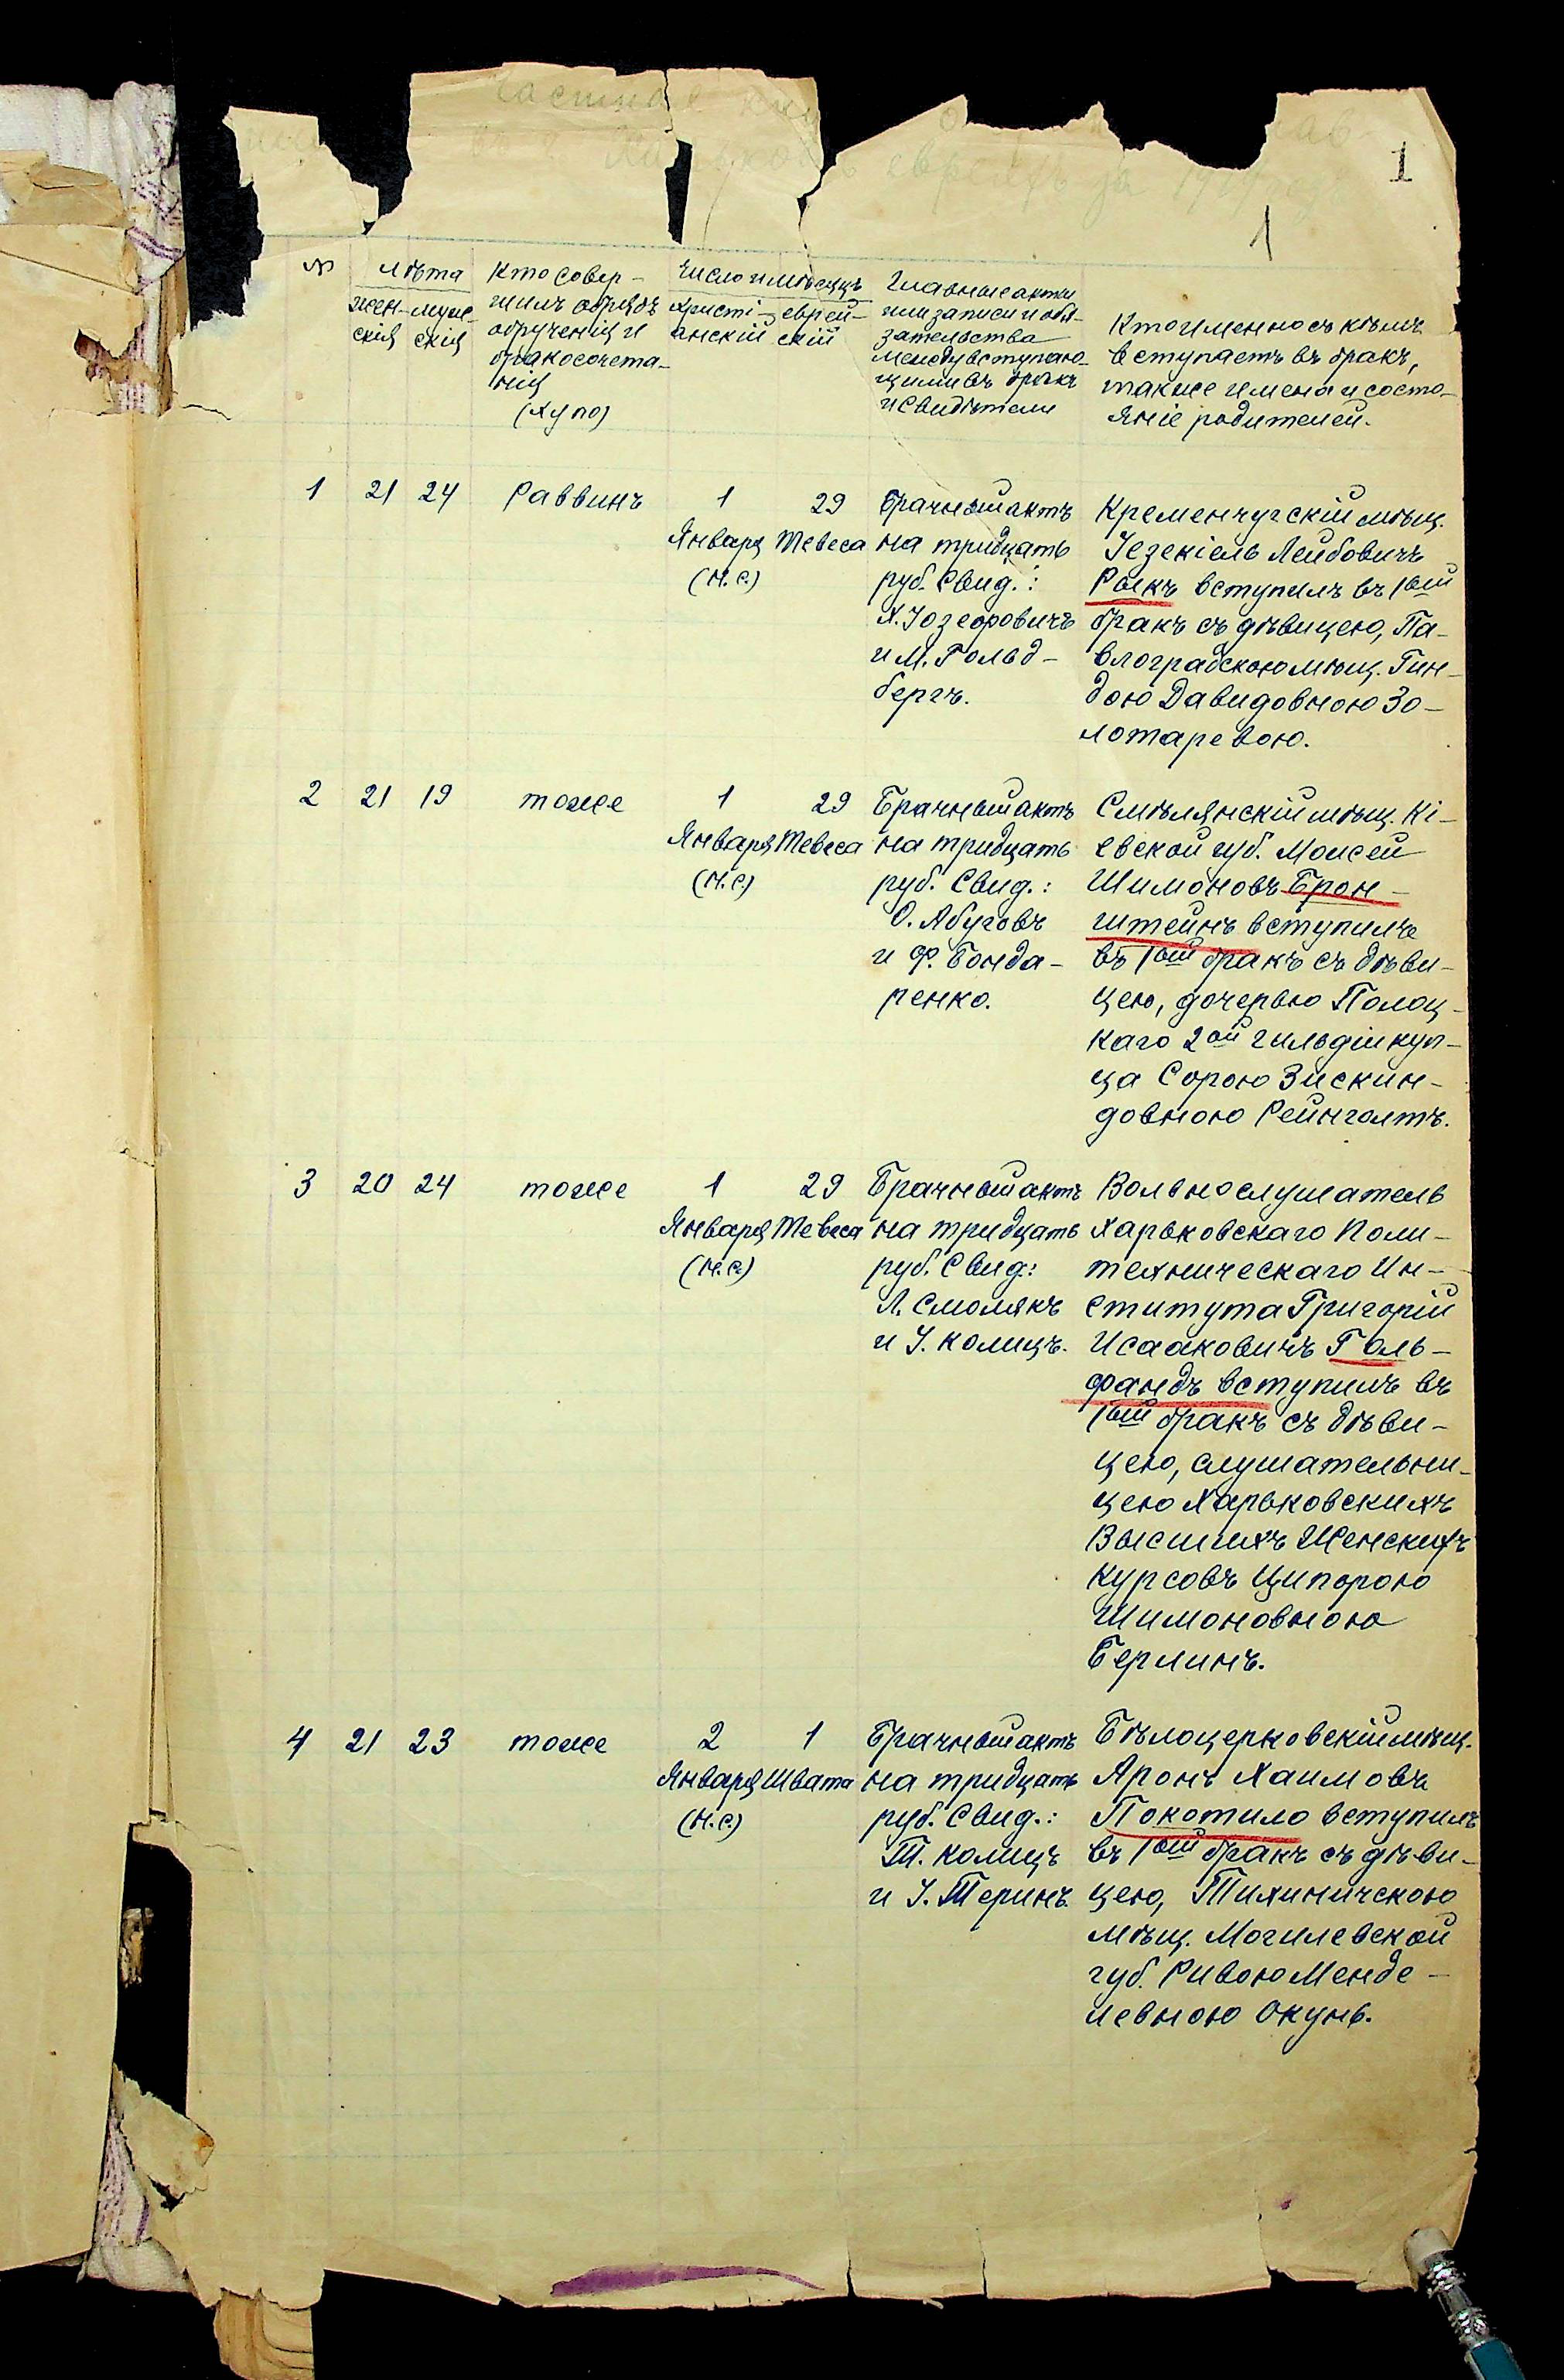 1
1
№
Лѣта
жен-
скія
муж-
скія
Кто совер-
шилъ обрядъ
обрученія и
бракосочета-
нія
(хупо)
Число и мѣсяцъ
христі-
анскій
еврей-
скій
Главные акты
или записи и обя-
зательства
между вступаю-
щими въ бракъ
и свидѣтели
Кто именно съ кѣмъ
вступаетъ въ бракъ,
также имена и состо-
яніе родителей.
1
21
24
Раввинъ
1
Января
(н.с.)
29
Тевеса
Брачный актъ
на тридцать
руб. Свид.:
Х. Іозефовичъ
и М. Гольд-
бергъ.
Кременчугскій мѣщ.
Іезекіель Лейбовичъ
Рыкъ вступилъ въ 1ый
бракъ съ дѣвицею, Па-
влоградскою мѣщ. Гин-
дою Давидовною Зо-
лотаревою.
2
21
19
тоже
1
Января
(н.с.)
29
Тевеса
Брачный актъ
на тридцать
руб. Свид.:
О. Абуговъ
и Ф. Бонда-
ренко.
Смѣлянскій мѣщ. Кі-
евской губ. Моисей
Шимоновъ Брон-
штейнъ вступилъ
въ 1ый бракъ съ дѣви-
цею, дочерью Полоц-
каго 2ой гильдіи куп-
ца Сорою Зискин-
довною Рейнгольтъ.
3
20
24
тоже
1
Января
(н.с.)
29
Тевеса
Брачный актъ
на тридцать
руб. Свид:
Л. Смолякъ
и І. Колицъ.
Вольнослушатель
Харьковскаго Поли-
техническаго Ин-
ститута Григорій
Исааковичъ Галь-
фандъ вступилъ въ
1ый бракъ съ дѣви-
цею, слушательни-
цею Харьковскихъ
Высшихъ Женскихъ
Курсовъ Ципорою
Шимоновною
Берлинъ.
4
21
23
тоже
2
Января
(н.с.)
1
Швата
Брачный актъ
на тридцать
руб. Свид.:
Т. Колицъ
и І. Теринъ
Бѣлоцерковскій мѣщ.
Аронъ Хаимовъ
Покотило вступилъ
въ 1ый бракъ съ дѣви-
цею, Тихиничскою
мѣщ. Могилевской
губ. Ривою Менде-
левною Окунь.